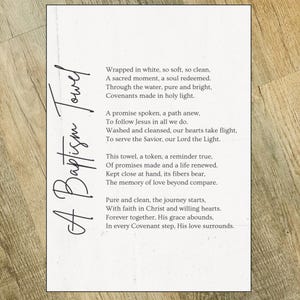 A Baptism Towel
Wrapped in white, so soft, so clean,
A sacred moment, a soul redeemed.
Through the water, pure and bright,
Covenants made in holy light.
A promise spoken, a path anew,
To follow Jesus in all we do.
Washed and cleansed, our hearts take flight,
To serve the Savior, our Lord the Light.
This towel, a token, a reminder true,
Of promises made and a life renewed.
Kept close at hand, its fibers bear,
The memory of love beyond compare.
Pure and clean, the journey starts,
With faith in Christ and willing hearts.
Forever together, His grace abounds,
In every Covenant step, His love surrounds.